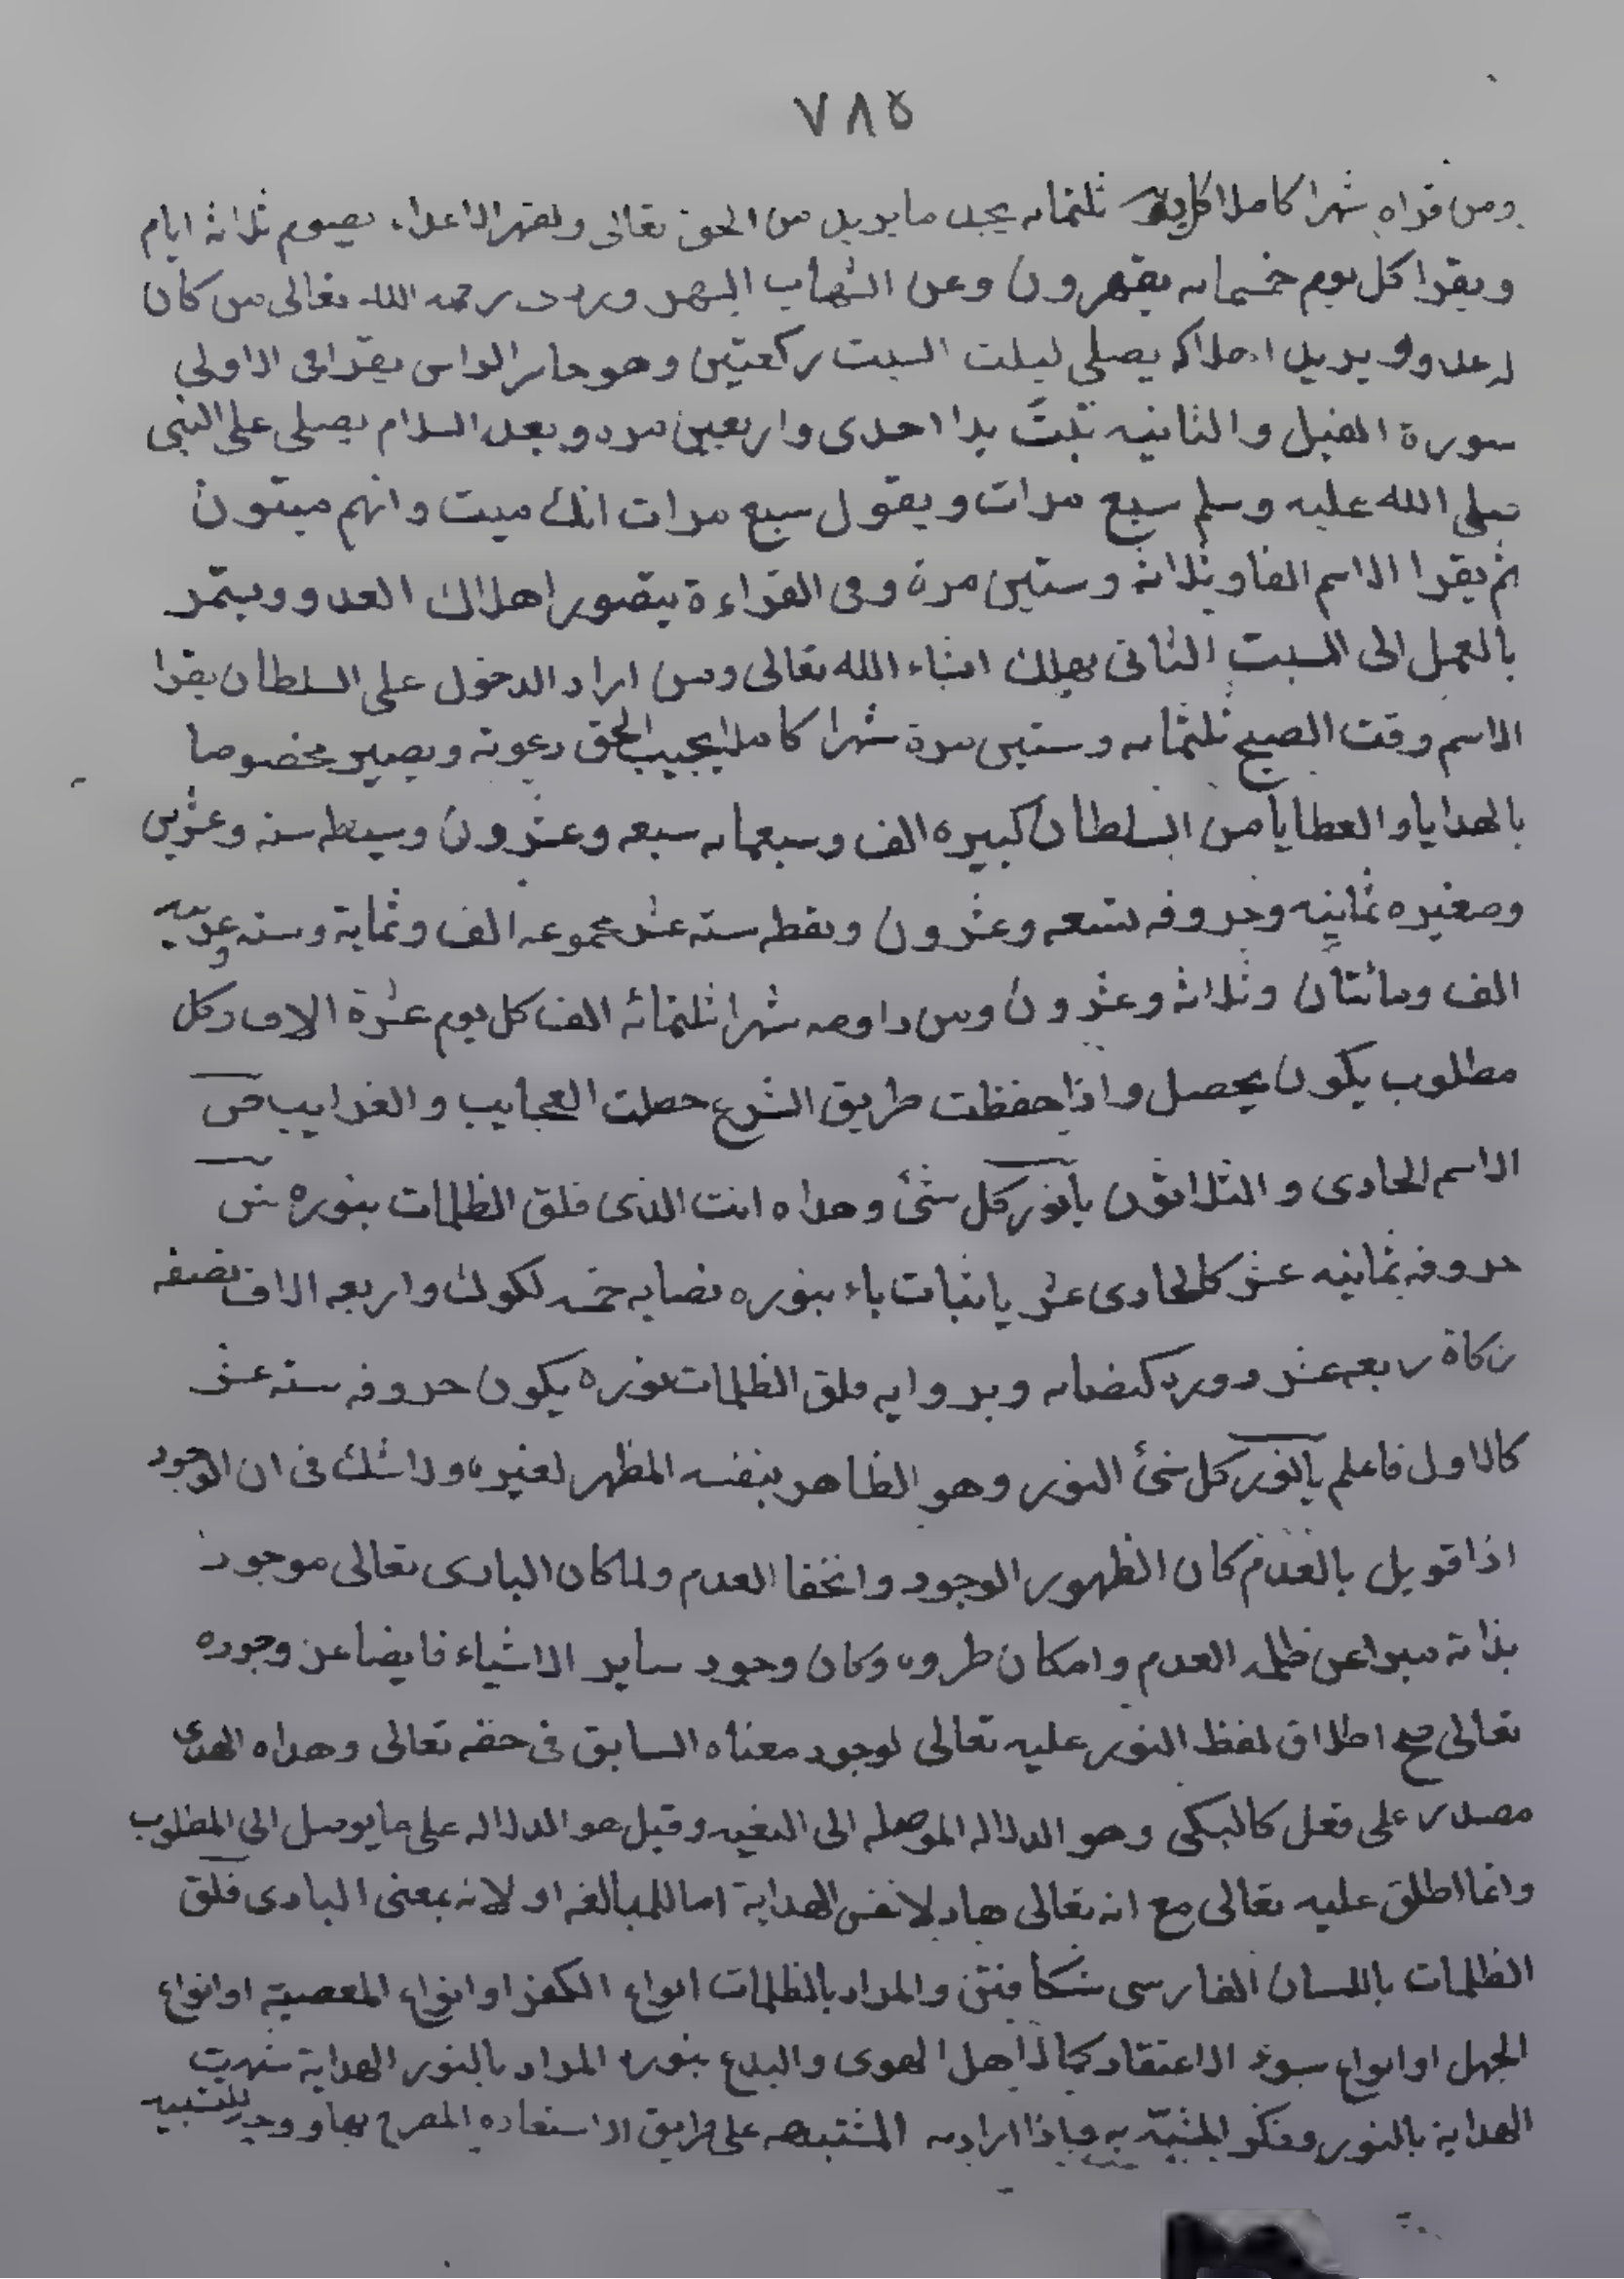 ٧٨٥
ومن قراه شهرا كاملا كل يوم ثلثمايه يجد ما يريد من الحق تعالى ولقهر الاعداء يصوم ثلاثة ايام
ويقرا كل يوم خمسمايه يقهرون وعن الشهاب السهروردى رحمه الله تعالى من كان
له عدو ويريد احلاكه يصلي ليلت السبت ركعتين وهو حاسر الراس يقرا فى الاولى
سورة الفيل والثانيه تبت يدا احدى واربعين مره وبعد السلام يصلى على النبى
صلى الله عليه وسلم سبع مرات ويقول سبع مرات انك ميت وانهم ميتون
ثم يقرا الاسم الفا وثلاثة وستين مرة وفى القراءة يتصور اهلاك العدو ويستمر
بالعمل الى السبت الثانى يهلك انشاء الله تعالى ومن اراد الدخول على السلطان يقرا
الاسم وقت الصبح ثلثمايه وستين مرة شهرا كاملا يجيب الحق دعوته ويصير مخصوصا
بالهدايا والعطايا من السلطان كبيره الف وسبعمايه سبعه وعشرون وسيطه سته وعشرين
وصغيره ثمانيه وحروفه تسعه وعشرون ونقطه سته عشر مجموعه الف وثماية وسته
الف ومائتان وثلاثة وعشرون ومن داومه شهرا ثلثمائة الف كل يوم عشرة الاف وكل
مطلوب يكون يحصل واذا حفظت طريق الشرع حصلت العجايب والغرايب ص
الاسم الحادى والثلاثون يا نور كل شئ وهداه انت الذى فلق الظلمات بنوره ش
حروفه ثمانيه عشر كالحادى عشر يا باثبات باء بنوره نصابه خمسه لكوك واربعه الاف نصفه
زكاة ربعه عشر دورد كنصابه وبروايه فلق الظلمات نوره يكون حروفه سته عشر
كالاول فاعلم يا نور كل شئ النور وهو الظاهر بنفسه المظهر لغيره ولا شك فى ان الوجود
اذا قوبل بالعدم كان الظهور الوجود وانخفا العدم ولما كان البارى تعالى موجود
بذاته مبرا عن ظلمه العدم وامكان طروه وكان وجود ساير الاشياء فايضا عن وجوده
تعالى صح اطلاق لفظ النور عليه تعالى لوجود معناه السابق فى حقه تعالى وهداه الهدى
مصدر على فعل كالبكى وهو الدلاله الموصله الى البغيه وقيل هو الدلاله على ما يوصل الى المطلوب
وانما اطلق عليه تعالى مع انه تعالى هاد لا نفس الهداية اما للمبالغه او لانه بمعنى البادى فلق
الظلمات باللسان الفارسى شكافتن والمراد بالظلمات انواع الكفر او انواع المعصية او انواع
الجهل او انواع سوء الاعتقاد كما لاهل الهوى والبدع بنوره المراد بالنور الهداية شبهت
الهداية بالنور وذكر المشبه به واذا اراد به المشتبهه على طريق الاستعاره المصرح بها ووجه للتشبيه